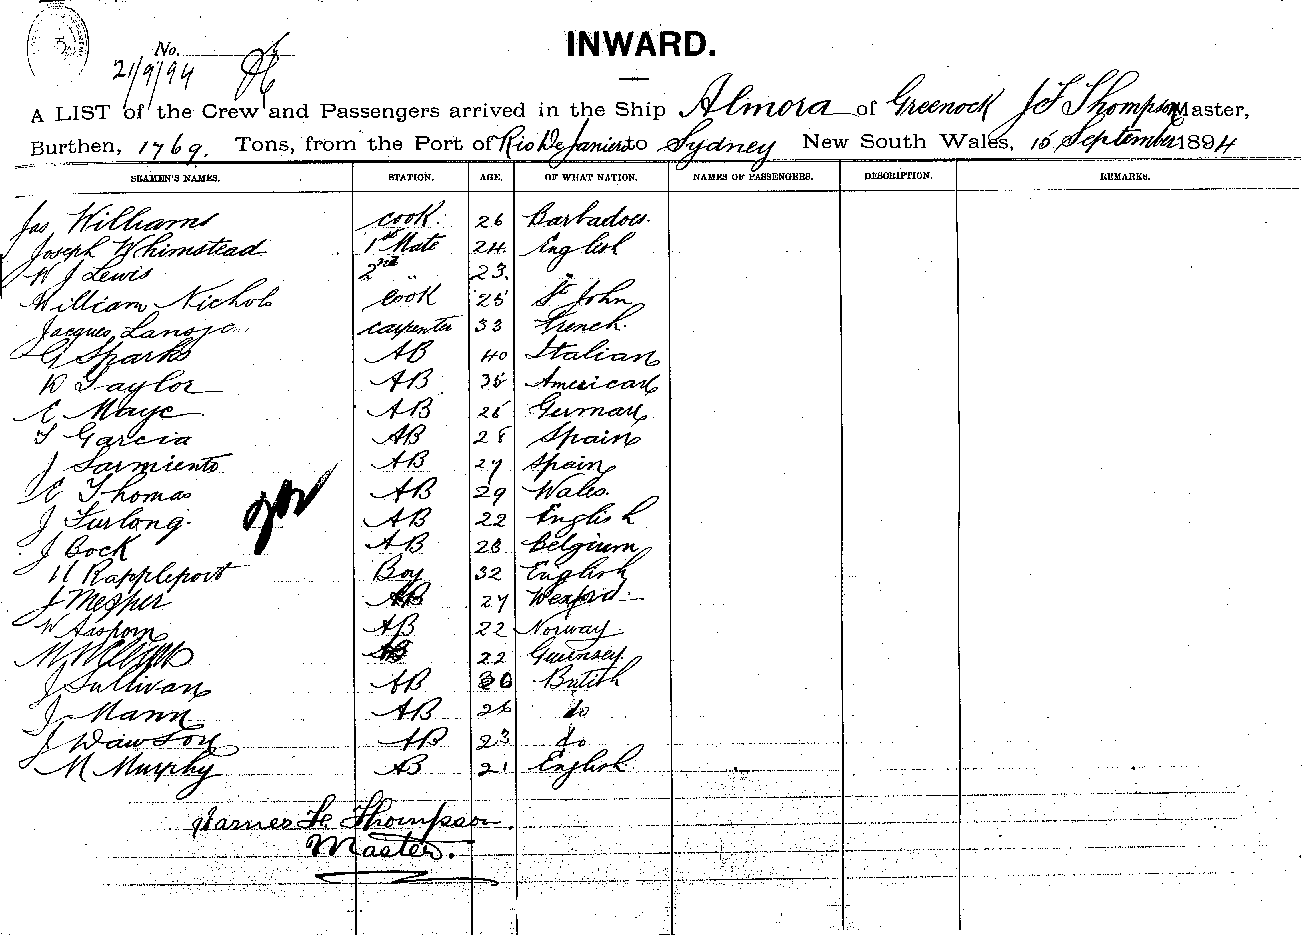 No.
21/9/94
INWARD.
A LIST of the Crew and Passengers arrived in the Ship Almora of Greenock J F Thompson Master,
Burthen, 1769. Tons, from the Port of Rio De Janiero to Sydney New South Wales, 15 September 1894
SEAMEN'S NAMES. STATION. AGE. OF WHAT NATION. NAMES OF PASSENGERS. DESCRIPTION. REMARKS.
Jas Williams cook. 26 Barbadoes.
Joseph Whimstead 1st Mate 24 English
W J Lewis 2nd " 23. "
William Nichols cook 25 St John
Jacques carpenter 33 French.
G Sparks AB 40 Italian
R Taylor AB 35 American
E Maye AB 25 German
T Garcia AB 28 Spain
J Sarmiento AB 27 Spain
E Thomas AB 29 Wales.
J Furlong. AB 22 English
J Cock AB 28 Belgium
H Rappleport Boy 32 English
J AB 27 Wexford
W AB 22 Norway
AB 22 Guernsey
J Sullivan AB 30 British
J Mann AB 26 do
J Dawson AB 23 do
M Murphy AB 21 English
James F. Thompson.
Master.